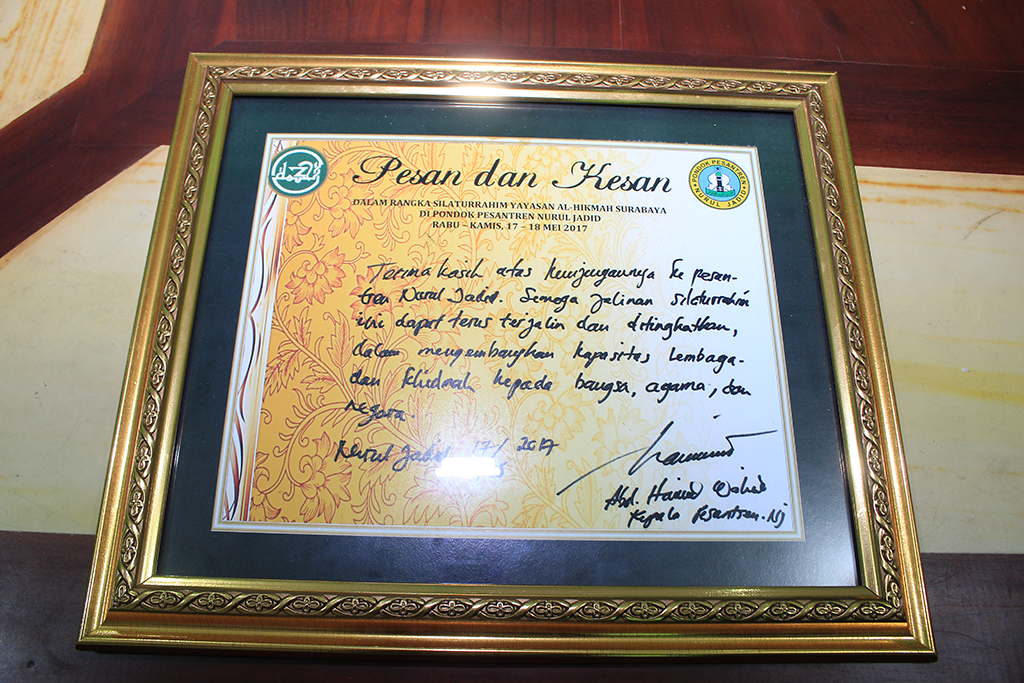 Pesan dan Kesan
PONDOK PESANTREN
NURUL JADID
DALAM RANGKA SILATURRAHIM YAYASAN AL-HIKMAH SURABAYA
DI PONDOK PESANTREN NURUL JADID
RABU – KAMIS, 17 – 18 MEI 2017
Terima kasih atas kunjungannya ke pesan-
tren Nurul Jadid. Semoga jalinan silaturrahim
ini dapat terus terjalin dan ditingkatkan,
dalam mengembangkan kapasitas lembaga-
dan khidmah kepada bangsa, agama, dan
negara.
Nurul Jadid 17/5 2017
Abd. Hamid Wahid
Kepala Pesantren. NJ